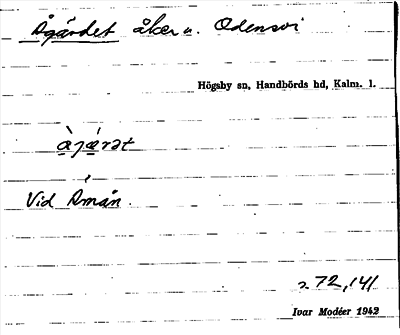 Ågärdet åker u. Odensvi
Högsby sn, Handbörds hd, Kalm. l.
Vid Åmån.
72,141
Ivar Modéer 1942